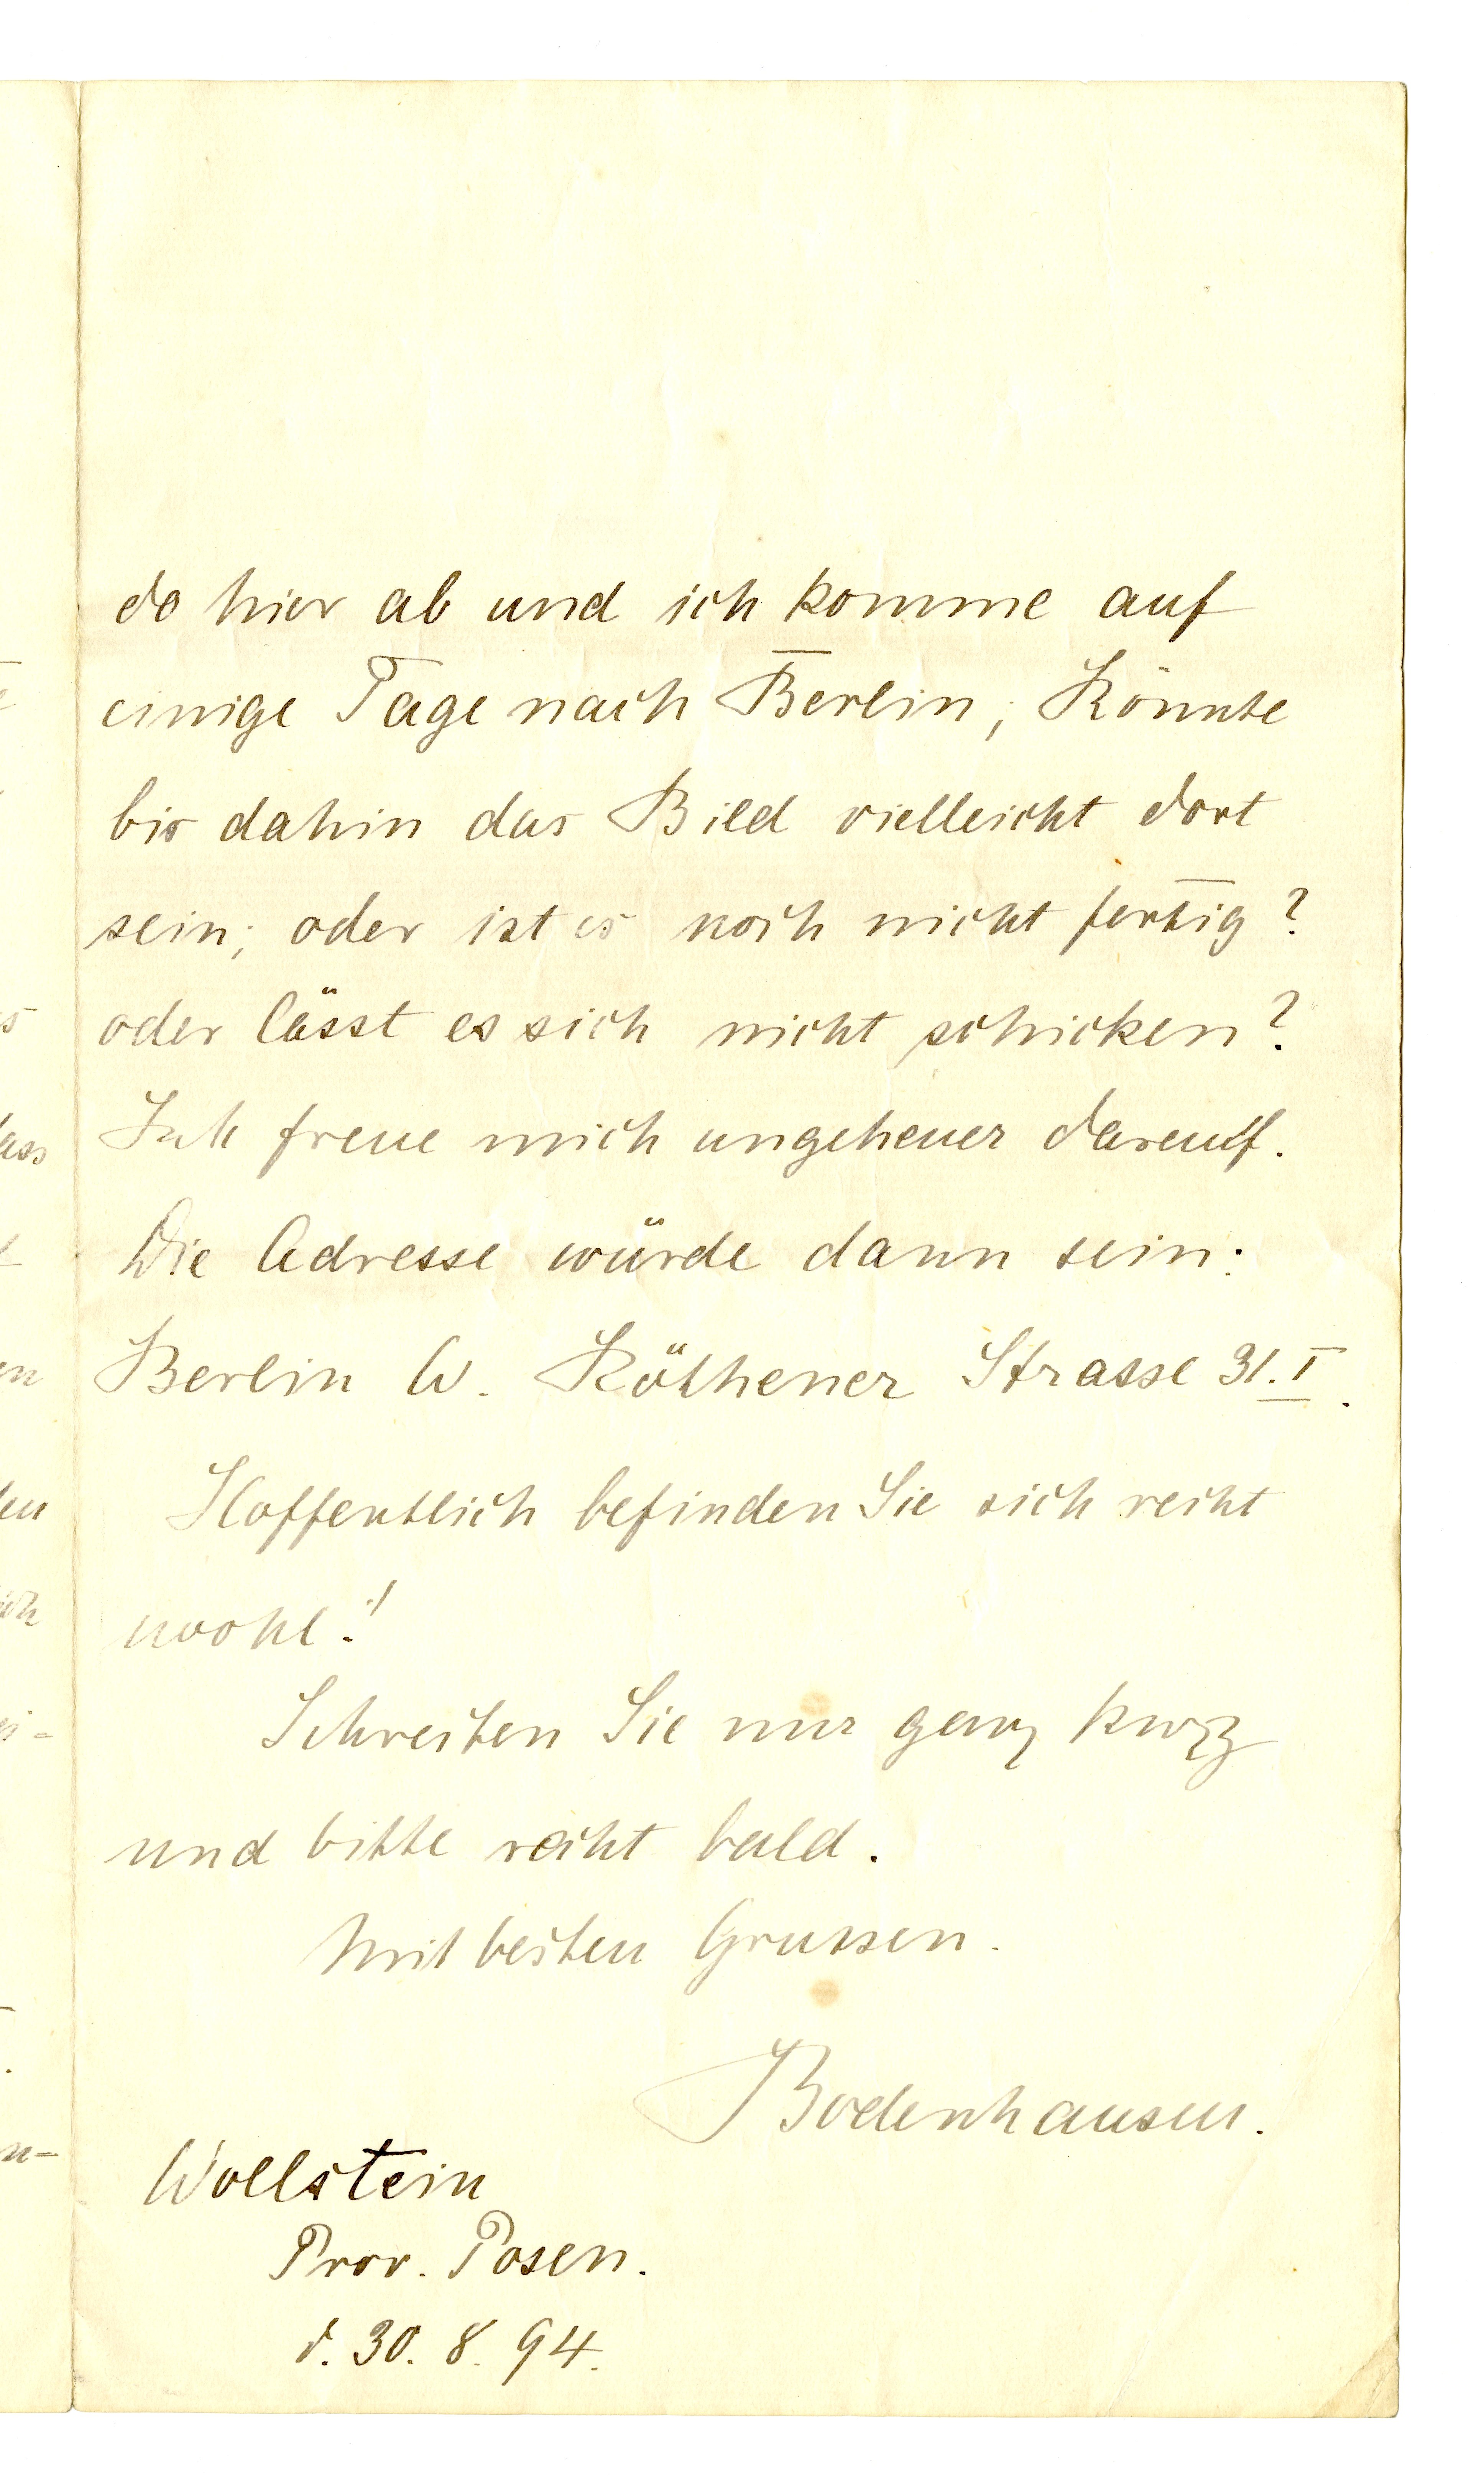 do hier ab und ich komme auf
einige Tage nach Berlin; Könnte
bis dahin das Bild vielleicht dort
sein; oder ist es noch nicht fertig?
oder lässt es sich nicht schicken?
Ich freue mich ungeheuer darauf.
Die Adresse würde dann sein:
Berlin W. Köthener Strasse 31.I.
Hoffentlich befinden Sie sich recht
wohl!
Schreiben Sie nur ganz kurz
und bitte recht bald.
Mit besten Grussen.
Bodenhausen.
Wollstein
Prov. Posen.
d. 30. 8. 94.